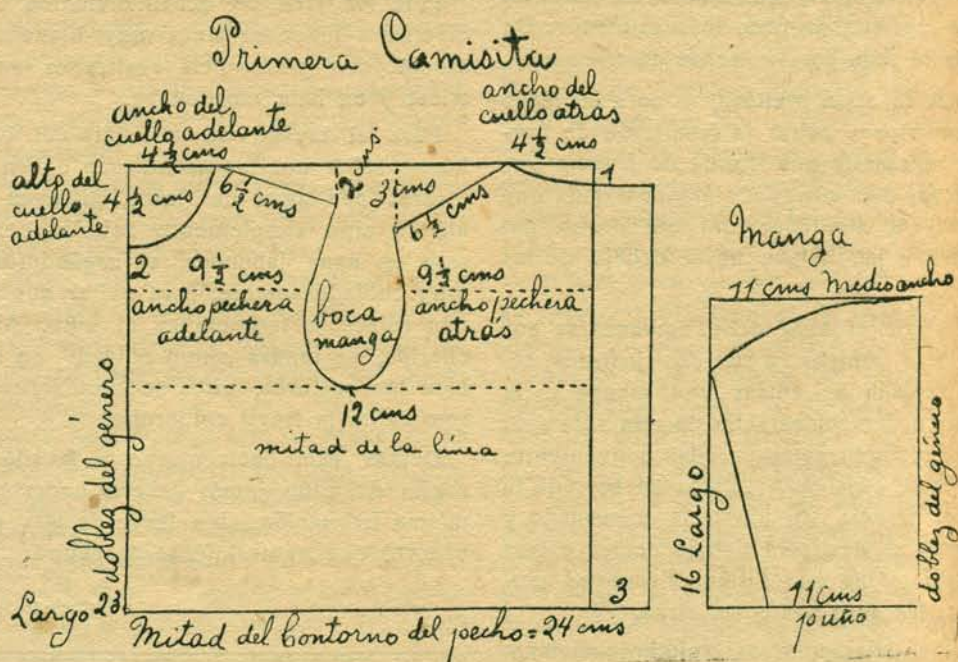 Primera Camisita
ancho del
cuello adelante
4 1/2 cms
ancho del
cuello atrás
4 1/2 cms
alto del
cuello
adelante
4 1/2 cms
6 1/2 cms
2 cms
3 cms
6 1/2 cms
1
2
9 1/2 cms
ancho pechera
adelante
boca
manga
9 1/2 cms
ancho pechera
atrás
12 cms
mitad de la línea
doblez del género
Largo 23
3
Mitad del Contorno del pecho = 24 cms
Manga
11 cms Medio ancho
16 Largo
doblez del género
11 cms
puño